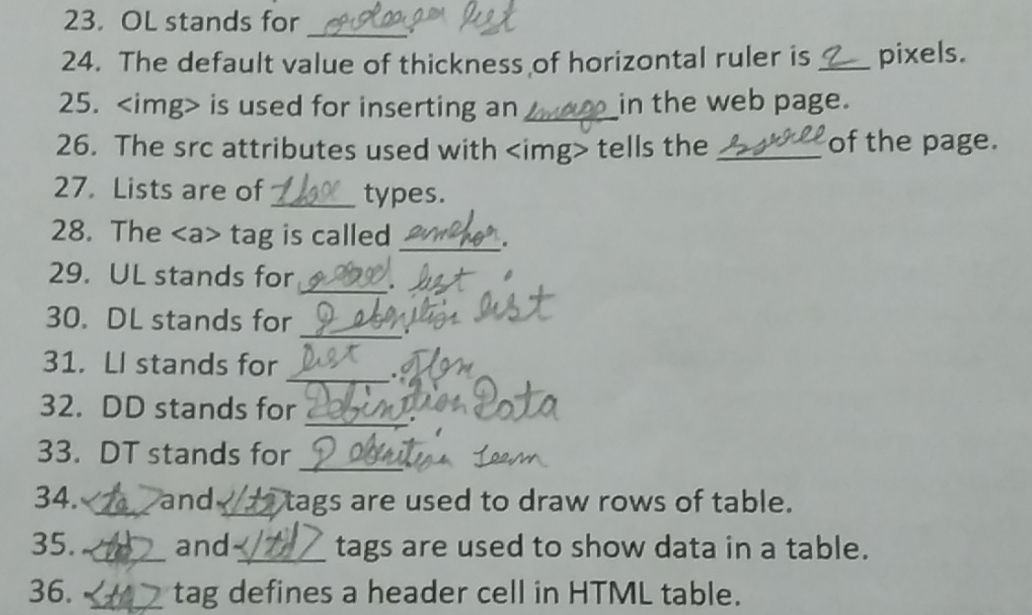 23. OL stands for list
24. The default value of thickness of horizontal ruler is 2 pixels.
25. <img> is used for inserting an image in the web page.
26. The src attributes used with <img> tells the of the page.
27. Lists are of types.
28. The <a> tag is called .
29. UL stands for . list
30. DL stands for list
31. LI stands for list .
32. DD stands for Data
33. DT stands for
34. and tags are used to draw rows of table.
35. <td> and </td> tags are used to show data in a table.
36. tag defines a header cell in HTML table.